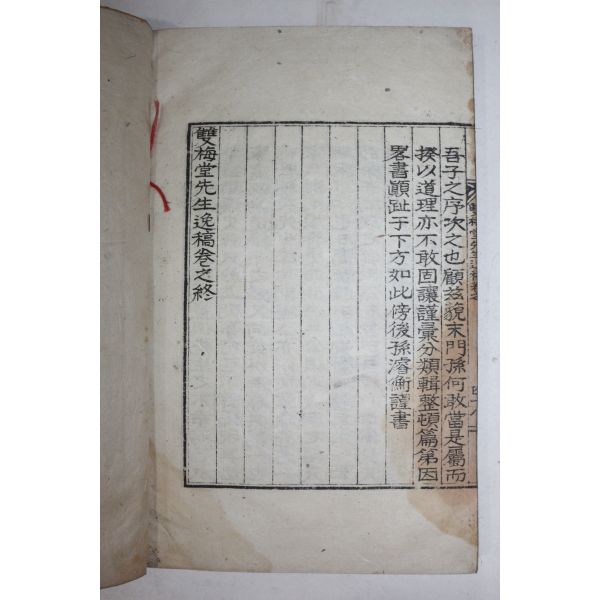 吾子之序次之也顧玆藐末門孫何敢當是屬而
揆以道理亦不敢固讓謹彙分類輯整頓篇第因
畧書顚趾于下方如此傍後孫濬衡謹書
雙梅堂先生逸稿卷之終